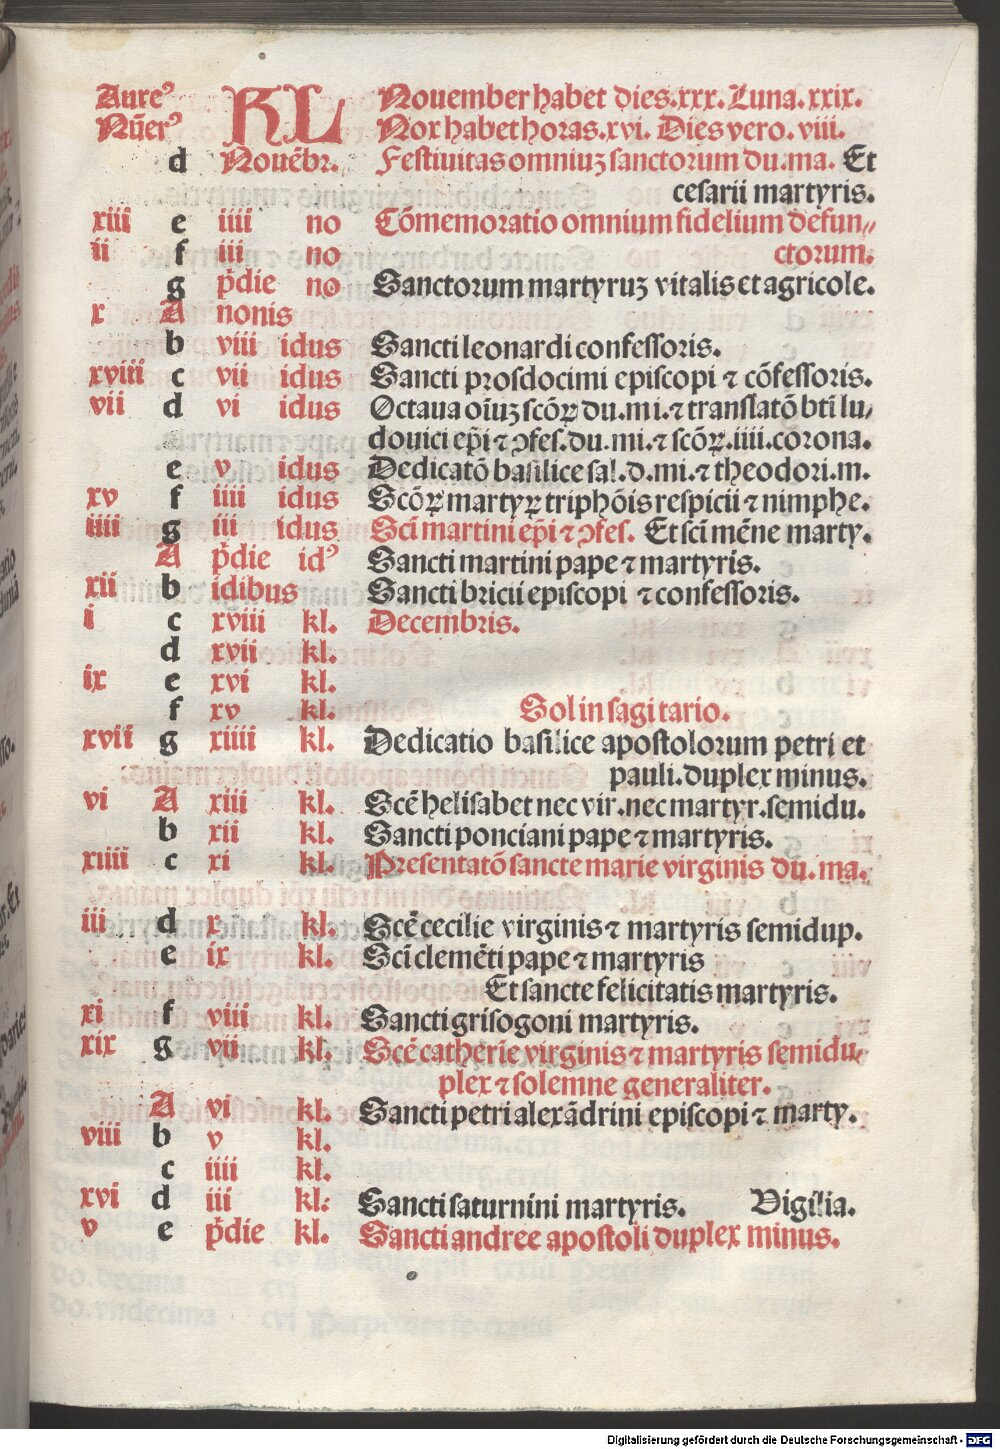 Aureꝰ KL Nouember habet dies.xxx. Luna.xxix.
Nũerꝰ Nox habet horas.xvi. Dies vero.viii.
d Nouẽbr. Festiuitas omniuꝫ sanctorum du.ma. Et
cesarii martyris.
xiii e iiii no Cõmemoratio omnium fidelium defun⸗
ii f iii no ctorum.
g p̃die no Sanctorum martyruꝫ vitalis et agricole.
x A nonis
b viii idus Sancti leonardi confessoris.
xviii c vii idus Sancti prosdocimi episcopi ⁊ cõfessoris.
vii d vi idus Octaua oĩuꝫ scõꝝ du.mi.⁊ translatõ bti̇̃ lu⸗
douici ep̃i ⁊ ꝯfes.du.mi.⁊ scõꝝ.iiii.corona.
e v idus Dedicatõ basilice sal.d.mi.⁊ theodori.m.
xv f iiii idus Scõꝝ martyꝝ triphõis respicii ⁊ nimphe.
iiii g iii idus Sci̇̃ martini ep̃i ⁊ ꝯfes. Et sci̇̃ mẽne marty.
A p̃die idꝰ Sancti martini pape ⁊ martyris.
xii b idibus Sancti bricii episcopi ⁊ confessoris.
i c xviii kl. Decembris.
d xvii kl.
ix e xvi kl.
f xv kl. Sol in sagitario.
xvii g xiiii kl. Dedicatio basilice apostolorum petri et
pauli.duplex minus.
vi A xiii kl. Scẽ helisabet nec vir.nec martyr.semidu.
b xii kl. Sancti ponciani pape ⁊ martyris.
xiiii c xi kl. Presentatõ sancte marie virginis du.ma.
iii d x kl. Scẽ cecilie virginis ⁊ martyris semidup.
e ix kl. Sci̇̃ clemẽti pape ⁊ martyris
Et sancte felicitatis martyris.
xi f viii kl. Sancti grisogoni martyris.
xix g vii kl. Scẽ catherie virginis ⁊ martyris semidu⸗
plex ⁊ solemne generaliter.
A vi kl. Sancti petri alexãdrini episcopi ⁊ marty.
viii b v kl.
c iiii kl.
xvi d iii kl: Sancti saturnini martyris. Vigilia.
v e p̃die kl. Sancti andree apostoli duplex minus.
Digitalisierung gefördert durch die Deutsche Forschungsgemeinschaft - DFG